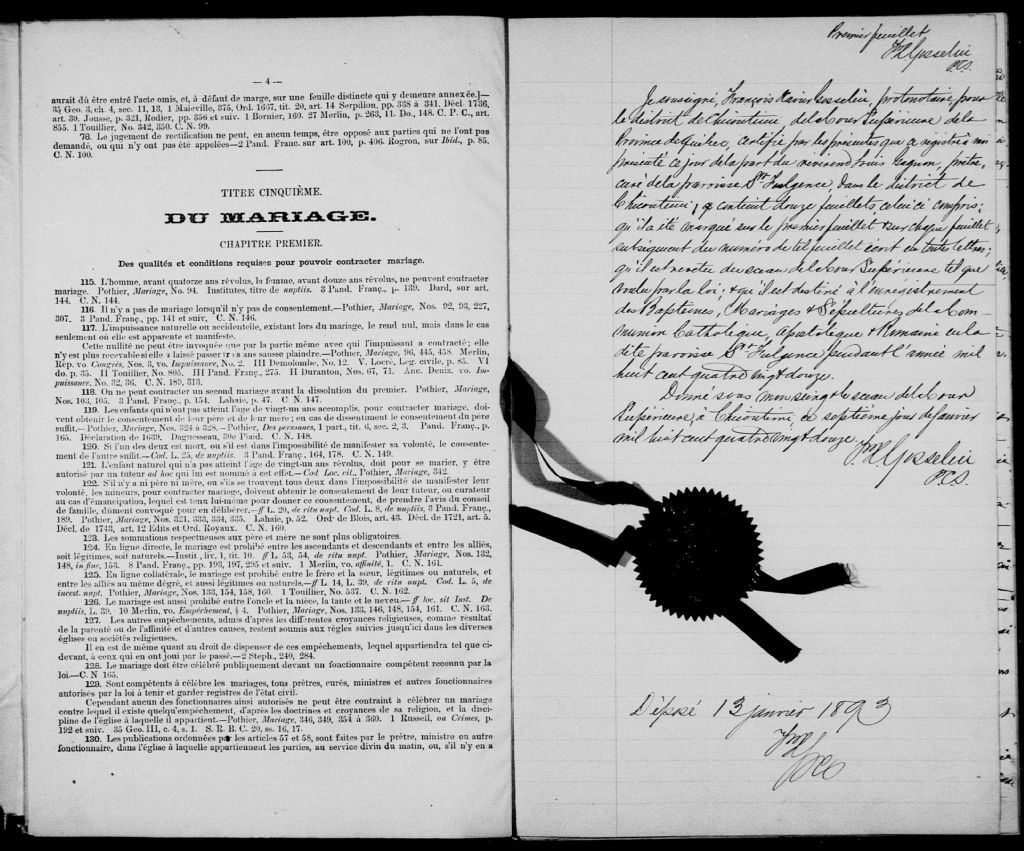 — 4 —
aurait dû être entré l'acte omis, et, à défaut de marge, sur une feuille distincte qui y demeure annexée.]—
35 Geo. 3, ch. 4, sec. 11, 13, 1 Maleville, 375, Ord. 1667, tit. 20, art. 14 Serpillon, pp. 338 à 341. Décl. 1736,
art. 30. Jousse, p. 321, Rodier, pp. 356 et suiv. 1 Bornier, 169. 27 Merlin, p. 263, 11. Do., 148. C. P. C., art.
855. 1 Touillier, No. 342, 350. C. N. 99.
78. Le jugement de rectification ne peut, en aucun temps, être opposé aux parties qui ne l'ont pas
demandé, ou qui n'y ont pas été appelées—2 Pand. Franc. sur art. 100, p. 406. Rogron, sur Ibid., p. 85.
C. N. 100.
TITRE CINQUIÈME.
DU MARIAGE.
CHAPITRE PREMIER.
Des qualités et conditions requises pour pouvoir contracter mariage.
115. L'homme, avant quatorze ans révolus, la femme, avant douze ans révolus, ne peuvent contracter
mariage. Pothier, Mariage, No. 94. Institutes, titre de nuptiis. 3 Pand. Franç., p. 139. Dard, sur art.
144. C. N. 144.
116. Il n'y a pas de mariage lorsqu'il n'y pas de consentement.—Pothier, Mariage, Nos. 92, 93, 227,
307. 3 Pand. Franç., pp. 141 et suiv, C. N. 146.
117. L'impuissance naturelle ou accidentelle, existant lors du mariage, le rend nul, mais dans le cas
seulement où elle est apparente et manifeste.
Cette nullité ne peut être invoquée que par la partie même avec qui l'impuissant a contracté; elle
n'y est plus recevable si elle a laissé passer trois ans sans se plaindre.—Pothier, Mariage, 96, 445, 458. Merlin,
Rép. vo. Congrès, Nos. 3, vo. Impuissance, No. 2. III Demolombe, No. 12. V. Locré, Leg. civile, p. 85. VI
do. p. 35. II Touillier, No. 805. III Pand. Franç., 275. II Duranton, Nos. 67, 71. Anc. Deniz. vo. Im-
puissance, No. 32, 36. C. N. 189, 313.
118. On ne peut contracter un second mariage avant la dissolution du premier. Pothier, Mariage,
Nos. 103, 105. 3 Pand. Franç., p. 154. Lahaie, p. 47. C. N. 147.
119. Les enfants qui n'ont pas atteint l'age de vingt-un ans accomplis, pour contracter mariage, doi-
vent obtenir le consentement de leur père et de leur mère; en cas de dissentiment le consentement du père
suffit.—Pothier, Mariage, Nos. 324 à 328.—Pothier, Des personnes, 1 part., tit. 6, sec. 2, 3. Pand. Franç., p.
165. Déclaration de 1639. Daguesseau, 30e Plaid. C. N. 148.
120. Si l'un des deux est mort, ou s'il est dans l'impossibilité de manifester sa volonté, le consente-
ment de l'autre suffit.—Cod. L. 25, de nuptiis. 3 Pand. Franç., 164, 178. C. N. 149.
121. L'enfant naturel qui n'a pas atteint l'âge de vingt-un ans révolus, doit pour se marier, y être
autorisé par un tuteur ad hoc qui lui est nommé à cet effet.—Cod Loc. cit., Pothier, Mariage, 342.
122. S'il n'y a ni père ni mère, ou s'ils se trouvent tous deux dans l'impossibilité de manifester leur
volonté, les mineurs, pour contracter mariage, doivent obtenir le consentement de leur tuteur, ou curateur
au cas d'émancipation, lequel est tenu lui-même pour donner ce consentement, de prendre l'avis du conseil
de famille, dûment convoqué pour en délibérer.—ff L. 20, de ritu nupt. Cod. L. 8, de nuptiis, 3 Pand. Franç.,
189. Pothier, Mariage, Nos. 321, 333, 334, 335. Lahaie, p. 52. Ord. de Blois, art. 43. Décl. de 1721, art. 5.
Décl. de 1743, art. 12 Edits et Ord. Royaux. C. N. 160.
123. Les sommations respectueuses aux père et mère ne sont plus obligatoires.
124. En ligne directe, le mariage est prohibé entre les ascendants et descendants et entre les alliés,
soit légitimes, soit naturels.—Instit., liv. 1, tit. 10. ff L. 53, 54, de ritu nupt. Pothier, Mariage, Nos. 132,
148, in fine, 153. 8 Pand. Franç., pp. 193, 197, 205 et suiv. 1 Merlin, vo. affinité, 1. C. N. 161.
125. En ligne collatérale, le mariage est prohibé entre le frère et la sœur, légitimes ou naturels, et
entre les alliés au même dégré, et aussi légitimes ou naturels.—ff L. 14, L. 39, de ritu nupt. Cod. L. 5, de
incest. nupt. Pothier, Mariage, Nos. 133, 154, 158, 160. 1 Touillier, No. 537. C. N. 162.
126. Le mariage est aussi prohibé entre l'oncle et la nièce, la tante et le neveu.—ff loc. sit Inst. De
nuptiis, L. 39. 10 Merlin, vo. Empêchement, § 4. Pothier, Mariage, Nos. 133, 146, 148, 154, 161. C. N. 163.
127. Les autres empêchements, admis d'après les différentes croyances religieuses, comme résultat
de la parenté ou de l'affinité et d'autres causes, restent soumis aux règles suivies jusqu'ici dans les diverses
églises ou sociétés religieuses.
Il en est de même quant au droit de dispenser de ces empêchements, lequel appartiendra tel que ci-
devant, à ceux qui en ont joui par le passé.—2 Steph., 240, 284.
128. Le mariage doit être célébré publiquement devant un fonctionnaire compétent reconnu par la
loi.—C. N 165.
129. Sont compétents à célébrer les mariages, tous prêtres, curés, ministres et autres fonctionnaires
autorisés par la loi à tenir et garder registres de l'état civil.
Cependant aucun des fonctionnaires ainsi autorisés ne peut être contraint à célébrer un mariage
contre lequel il existe quelqu'empêchement, d'après les doctrines et croyances de sa religion, et la disci-
pline de l'église à laquelle il appartient.—Pothier, Mariage, 346, 349, 354 à 369. 1 Russell, on Crimes, p.
192 et suiv. 35 Geo. III, c. 4, s. 1. S. R. B. C. 20, ss. 16, 17.
130. Les publications ordonnées par les articles 57 et 58, sont faites par le prêtre, ministre ou autre
fonctionnaire, dans l'église à laquelle appartiennent les parties, au service divin du matin, ou, s'il n'y en a
Premier feuillet
FX Gosselin
P.C.S.
Je soussigné, François Xavier Gosselin, protonotaire pour
le district de Chicoutimi de la Cour Supérieure de la
Province de Québec, certifie par les présentes que ce registre à moi
présenté ce jour de la part du révérend Gagnon, prêtre,
curé de la paroisse St Fulgence, dans le district de
Chicoutimi, & contient douze feuillets celui ci compris;
qu'il a été marqué sur le premier feuillet & sur chaque feuillet
subséquent du numéro de tel feuillet écrit en toutes lettres;
qu'il est revêtu du sceau de la Cour Supérieure tel que
voulu par la loi; & qu'il est destiné à l'enregistrement
des Baptêmes, Mariages & Sépultures de la Com-
munion Catholique, apostolique & Romaine en la
dite paroisse St Fulgence pendant l'année mil
huit cent quatre vingt douze.
Donné sous mon seing & le sceau de la Cour
Supérieure, à Chicoutimi, ce septième jour de janvier
mil huit cent quatre vingt douze.
FX Gosselin
P.C.S.
Déposé 13 janvier 1893